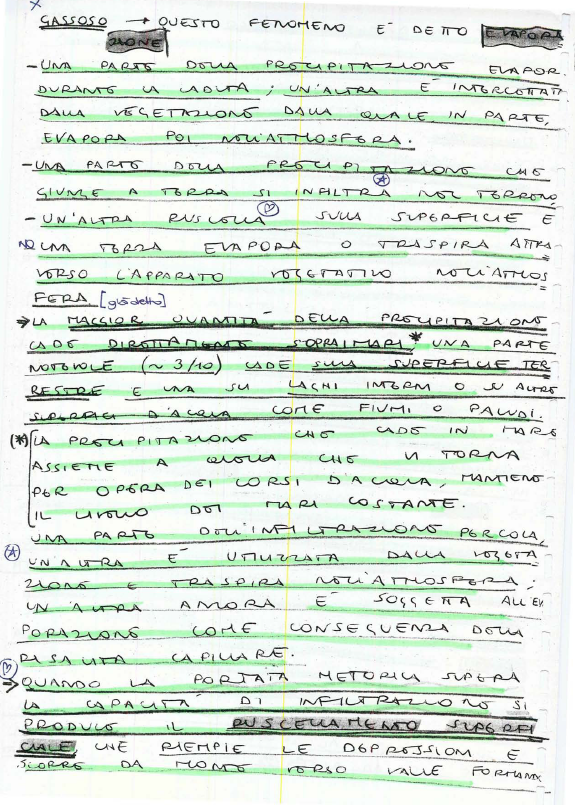 GASSOSO → QUESTO FENOMENO E' DETTO EVAPORA
ZIONE
- UNA PARTE DELLA PRECIPITAZIONE EVAPOR.
DURANTE LA CADUTA; UN'ALTRA E' INTERCETTATA
DALLA VEGETAZIONE DALLA QUALE IN PARTE,
EVAPORA POI NELL'ATMOSFERA.
- UNA PARTE DELLA PRECIPITAZIONE CHE
GIUNGE A TERRA SI INFILTRA NEL TERRENO
- UN'ALTRA RUSCELLA SULLA SUPERFICIE E
NO UNA TERZA EVAPORA O TRASPIRA ATTRA
VERSO L'APPARATO VEGETATIVO NELL'ATMOS
FERA [già detto]
→ LA MAGGIOR QUANTITA' DELLA PRECIPITAZIONE
CADE DIRETTAMENTE SOPRA I MARI * UNA PARTE
NOTEVOLE (~ 3/10) CADE SULLA SUPERFICIE TER
RESTRE E UNA SU LAGHI INTERNI O SU ALTRE
SUPERFICI D'ACQUA COME FIUMI O PALUDI.
(*) LA PRECIPITAZIONE CHE CADE IN MARE
ASSIEME A QUELLA CHE VI TORNA
PER OPERA DEI CORSI D'ACQUA, MANTIENE
IL LIVELLO DEI MARI COSTANTE.
UNA PARTE DELL'INFILTRAZIONE PERCOLA,
UN'ALTRA E' UTILIZZATA DALLA VEGETA
ZIONE E TRASPIRA NELL'ATMOSFERA;
UN'ALTRA ANCORA E' SOGGETTA ALL'EV.
PORAZIONE COME CONSEGUENZA DELLA
RISALITA CAPILLARE.
→ QUANDO LA PORTATA METORICA SUPERA
LA CAPACITA' DI INFILTRAZIONE SI
PRODUCE IL RUSCELLAMENTO SUPERFI
CIALE CHE RIEMPIE LE DEPRESSIONI E
SCORRE DA MONTE VERSO VALLE FORMANDO